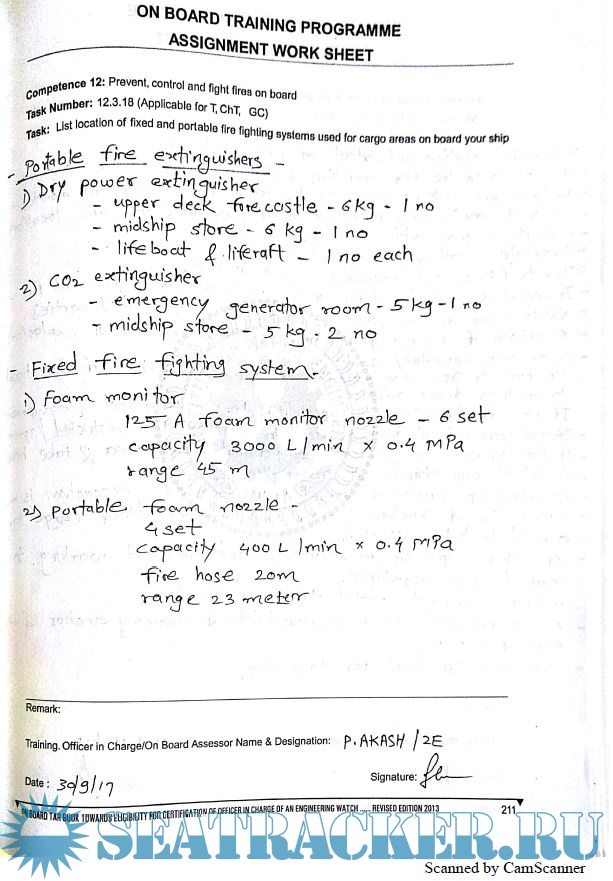 ON BOARD TRAINING PROGRAMME
ASSIGNMENT WORK SHEET
Competence 12: Prevent, control and fight fires on board
Task Number: 12.3.18 (Applicable for T, ChT, GC)
Task: List location of fixed and portable fire fighting systems used for cargo areas on board your ship
- Portable fire extinguishers -
1) Dry power extinguisher
- upper deck forecastle - 6 kg - 1 no
- midship store - 6 kg - 1 no
- lifeboat & liferaft - 1 no each
2) CO2 extinguisher
- emergency generator room - 5 kg - 1 no
- midship store - 5 kg - 2 no
- Fixed fire fighting system -
1) Foam monitor
125 A foam monitor nozzle - 6 set
capacity 3000 L/min x 0.4 MPa
range 45 m
2) Portable foam nozzle -
4 set
capacity 400 L/min x 0.4 MPa
fire hose 20m
range 23 meter
Remark:
Training. Officer in Charge/On Board Assessor Name & Designation: P. AKASH / 2E
Date : 30/9/17
Signature:
ON BOARD TAR BOOK TOWARDS ELIGIBILITY FOR CERTIFICATION OF OFFICER IN CHARGE OF AN ENGINEERING WATCH ..... REVISED EDITION 2013
211
SEATRACKER.RU
Scanned by CamScanner